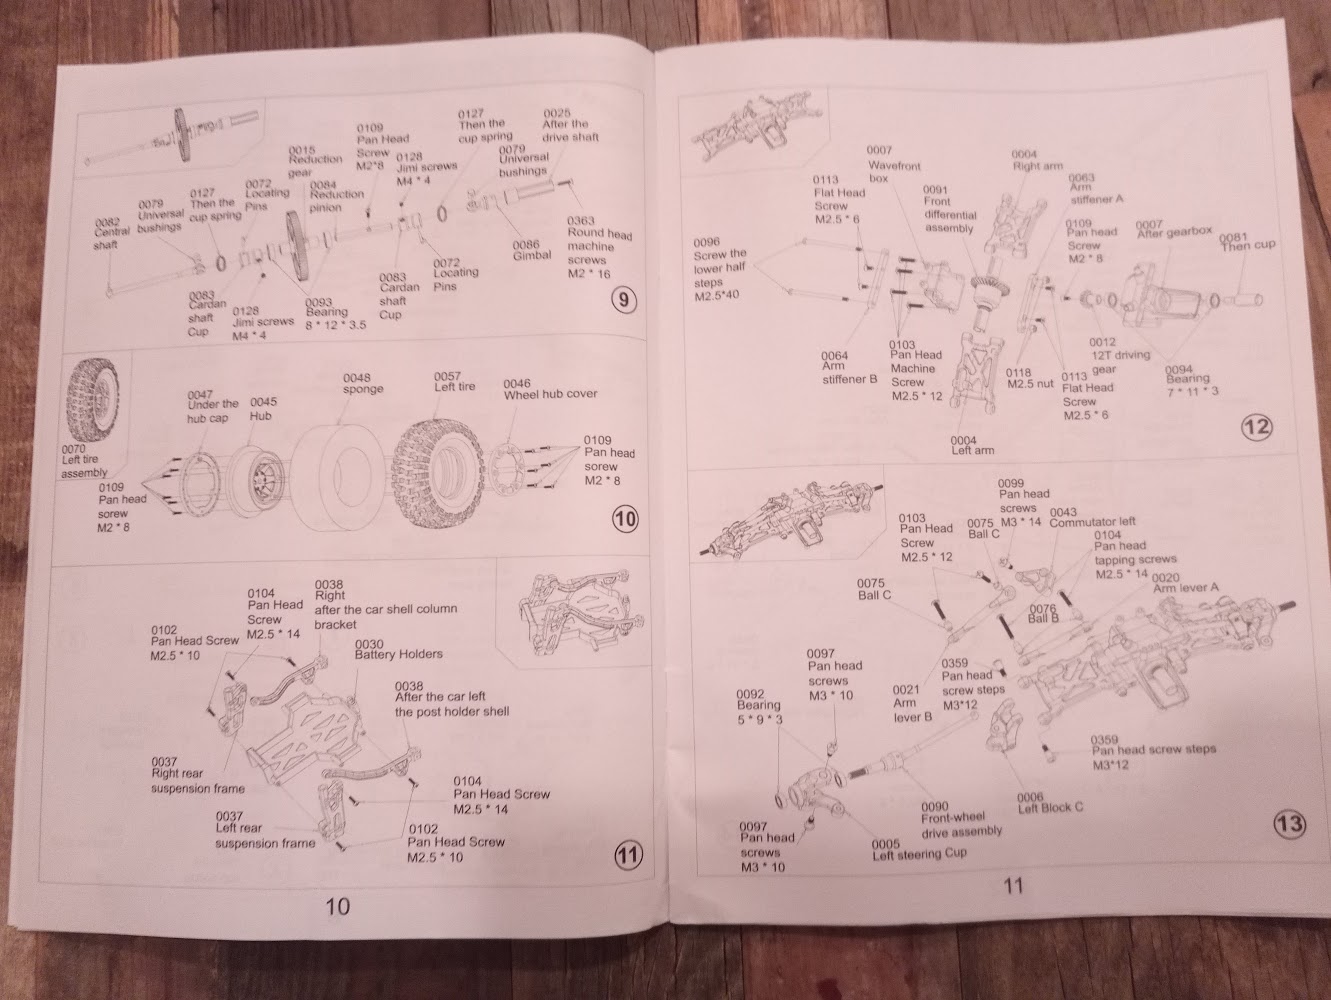 0109
Pan Head
Screw
M2*8
0127
Then the
cup spring
0025
After the
drive shaft
0015
Reduction
gear
0128
Jimi screws
M4 * 4
0079
Universal
bushings
0072
Locating
Pins
0084
Reduction
pinion
0127
Then the
cup spring
0079
Universal
bushings
0082
Central
shaft
0363
Round head
machine
screws
M2 * 16
0086
Gimbal
0072
Locating
Pins
0083
Cardan
shaft
Cup
0083
Cardan
shaft
Cup
0128
Jimi screws
M4 * 4
0093
Bearing
8 * 12 * 3.5
9
0070
Left tire
assembly
0047
Under the
hub cap
0045
Hub
0048
sponge
0057
Left tire
0046
Wheel hub cover
0109
Pan head
sorew
M2 * 8
0109
Pan head
sorew
M2 * 8
10
0038
Right
after the car shell column
bracket
0104
Pan Head
Screw
M2.5 * 14
0102
Pan Head Screw
M2.5 * 10
0030
Battery Holders
0038
After the car left
the post holder shell
0037
Right rear
suspension frame
0037
Left rear
suspension frame
0104
Pan Head Screw
M2.5 * 14
0102
Pan Head Screw
M2.5 * 10
11
10
0007
Wavefront
box
0004
Right arm
0113
Flat Head
Screw
M2.5 * 6
0091
Front
differential
assembly
0063
Arm
stiffener A
0109
Pan head
Screw
M2 * 8
0007
After gearbox
0081
Then cup
0096
Screw the
lower half
steps
M2.5*40
0064
Arm
stiffener B
0103
Pan Head
Machine
Screw
M2.5 * 12
0118
M2.5 nut
0012
12T driving
gear
0113
Flat Head
Screw
M2.5 * 6
0094
Bearing
7 * 11 * 3
0004
Left arm
12
0099
Pan head
screws
M3 * 14
0103
Pan Head
Screw
M2.5 * 12
0075
Ball C
0043
Commutator left
0104
Pan head
tapping screws
M2.5 * 14
0075
Ball C
0020
Arm lever A
0076
Ball B
0097
Pan head
screws
M3 * 10
0359
Pan head
screw steps
M3*12
0092
Bearing
5 * 9 * 3
0021
Arm
lever B
0359
Pan head screw steps
M3*12
0006
Left Block C
0090
Front-wheel
drive assembly
0097
Pan head
screws
M3 * 10
0005
Left steering Cup
13
11